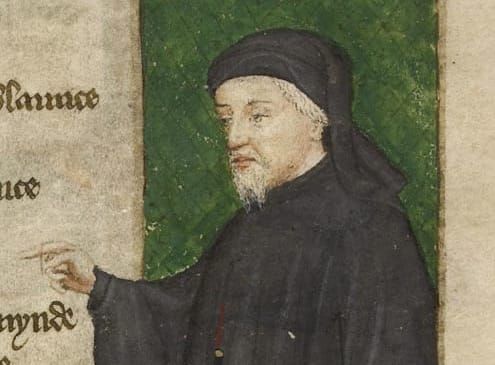 blaunce
nce
mynde